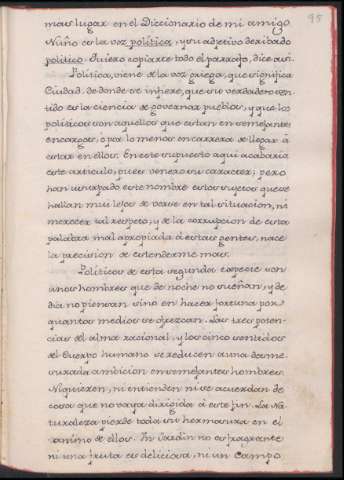 95
mas lugar en el Diccionario de mi amigo
Nuño es la voz politica, y su adjetivo deribado
politico. Quiero copiarte todo el parrafo, dice asi.
Politica, viene de la voz griega, que significa
Ciudad. de donde se infiere, que su verdadero sen-
tido es la ciencia de governar pueblos, y que los
politicos son aquellos que estan en semejantes
encargos, ò por lo menos en carrera de llegar à
estar en ellos. En este supuesto aqui acabaria
este articulo, pues venero su caracter; pero
han usurpado este nombre estos sujetos que se
hallan mui lejos de verse en tal situacion, ni
merecer tal respeto, y de la corrupcion de esta
palabra mal apropiada à estas gentes, nace
la precision de estenderme mas.
Politicos de esta segunda especie son
unos hombres que de noche no sueñan, y de
dia no piensan sino en hacer fortuna por
quantos medios se ofrezcan. Las tres poten-
cias del alma racional, y los cinco sentidos
del Cuerpo humano se reducen a una desme-
surada ambicion en semejantes hombres.
Ni quieren, ni entienden ni se acuerdan de
cosas que no vaya dirigida à este fin. La Na-
turaleza pierde toda su hermosura en el
animo de ellos. Un Jardin no es fragrante
ni una fruta es deliciosa, ni un Campo